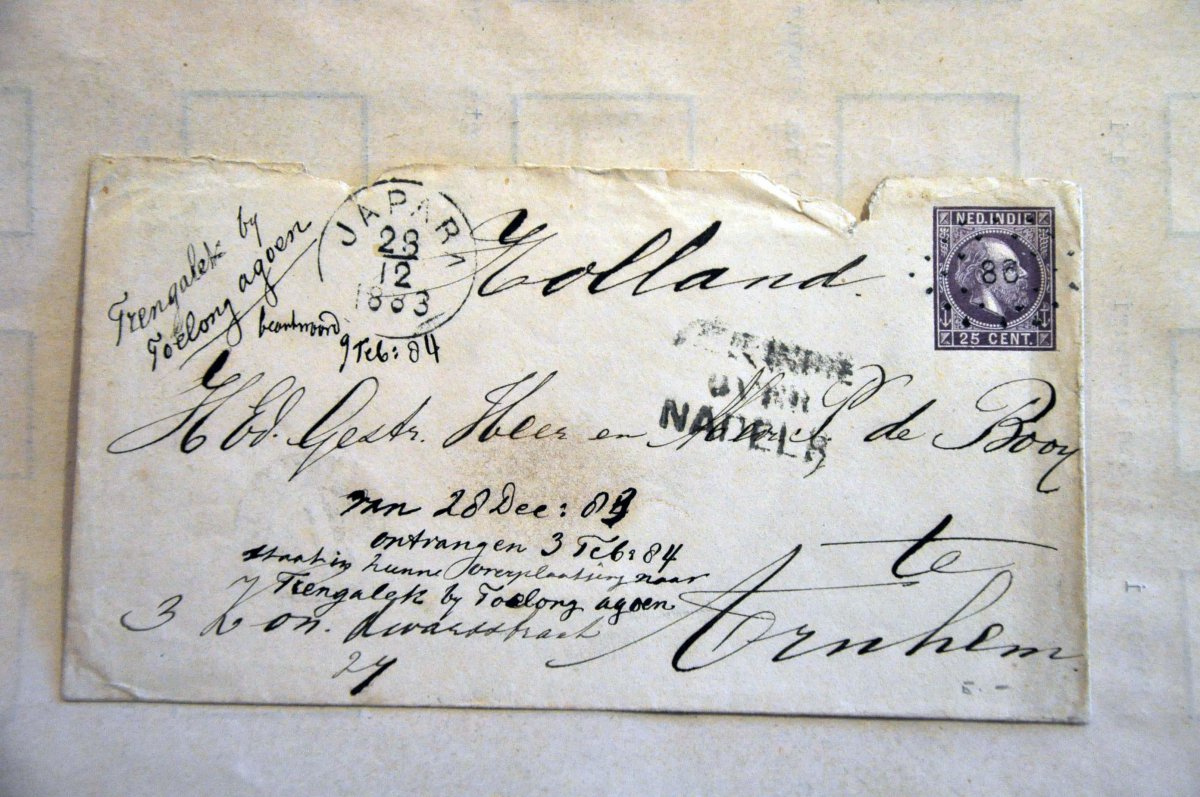 Trengalek by
Toelong agoen
JAPARA
28
12
1883
beantwoord
9 Feb: 84
Holland
NED. INDIE
86
25 CENT.
NED. INDIE
OVER
NAPELS
H Ed. Gestr. Heer en de Booy
van 28 Dec: 83
ontvangen 3 Feb: 84
staat in hunne overplaatsing naar
Trengalek by Toelong agoen
te
Arnhem
3
27